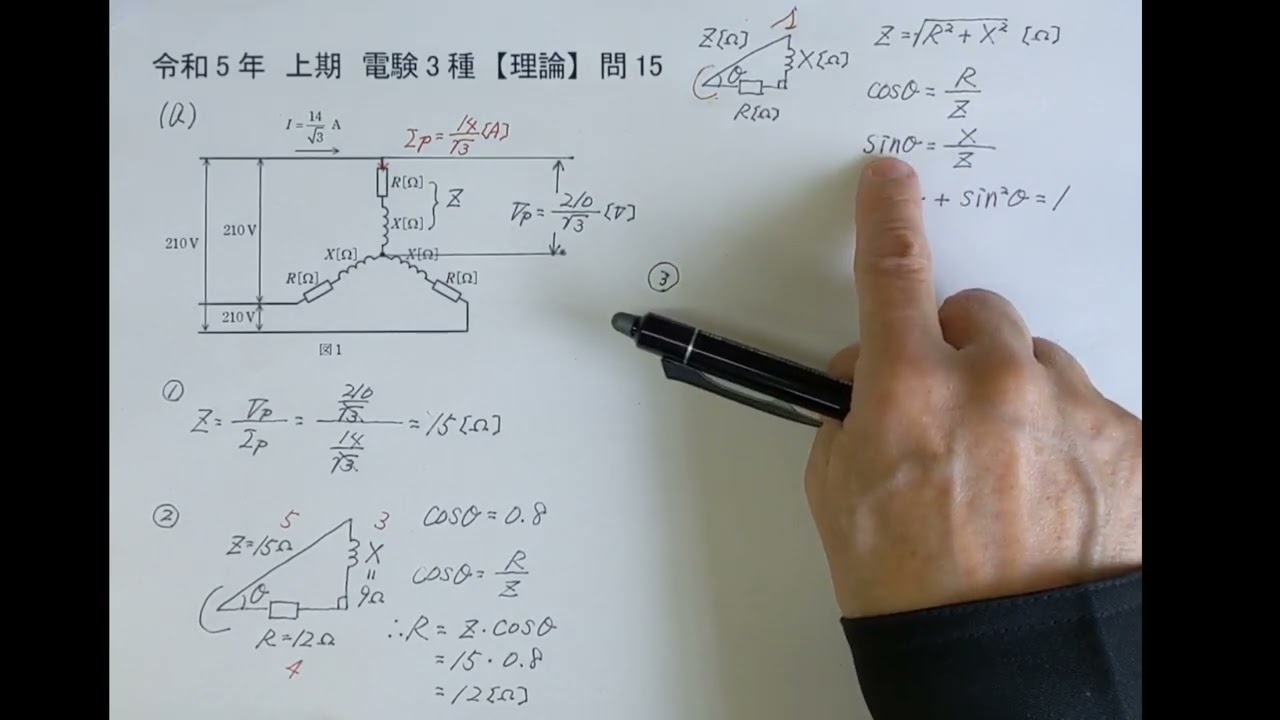 令和5年 上期 電験3種 【理論】 問15
(a)
I = 14/√3 A
Ip = 14/√3 [A]
R[Ω]
Z
X[Ω]
Vp = 210/√3 [V]
210 V
210 V
X[Ω]
X[Ω]
R[Ω]
R[Ω]
210 V
図1
Z[Ω]
1
X[Ω]
θ
R[Ω]
Z = √R² + X² [Ω]
cosθ = R/Z
sinθ = X/Z
+ sin²θ = 1
① Z = Vp/Ip = (210/√3)/(14/√3) = 15 [Ω]
②
5
3
Z=15Ω
X
=
9Ω
θ
R=12Ω
4
cosθ = 0.8
cosθ = R/Z
∴R = Z·cosθ
= 15·0.8
= 12[Ω]
③